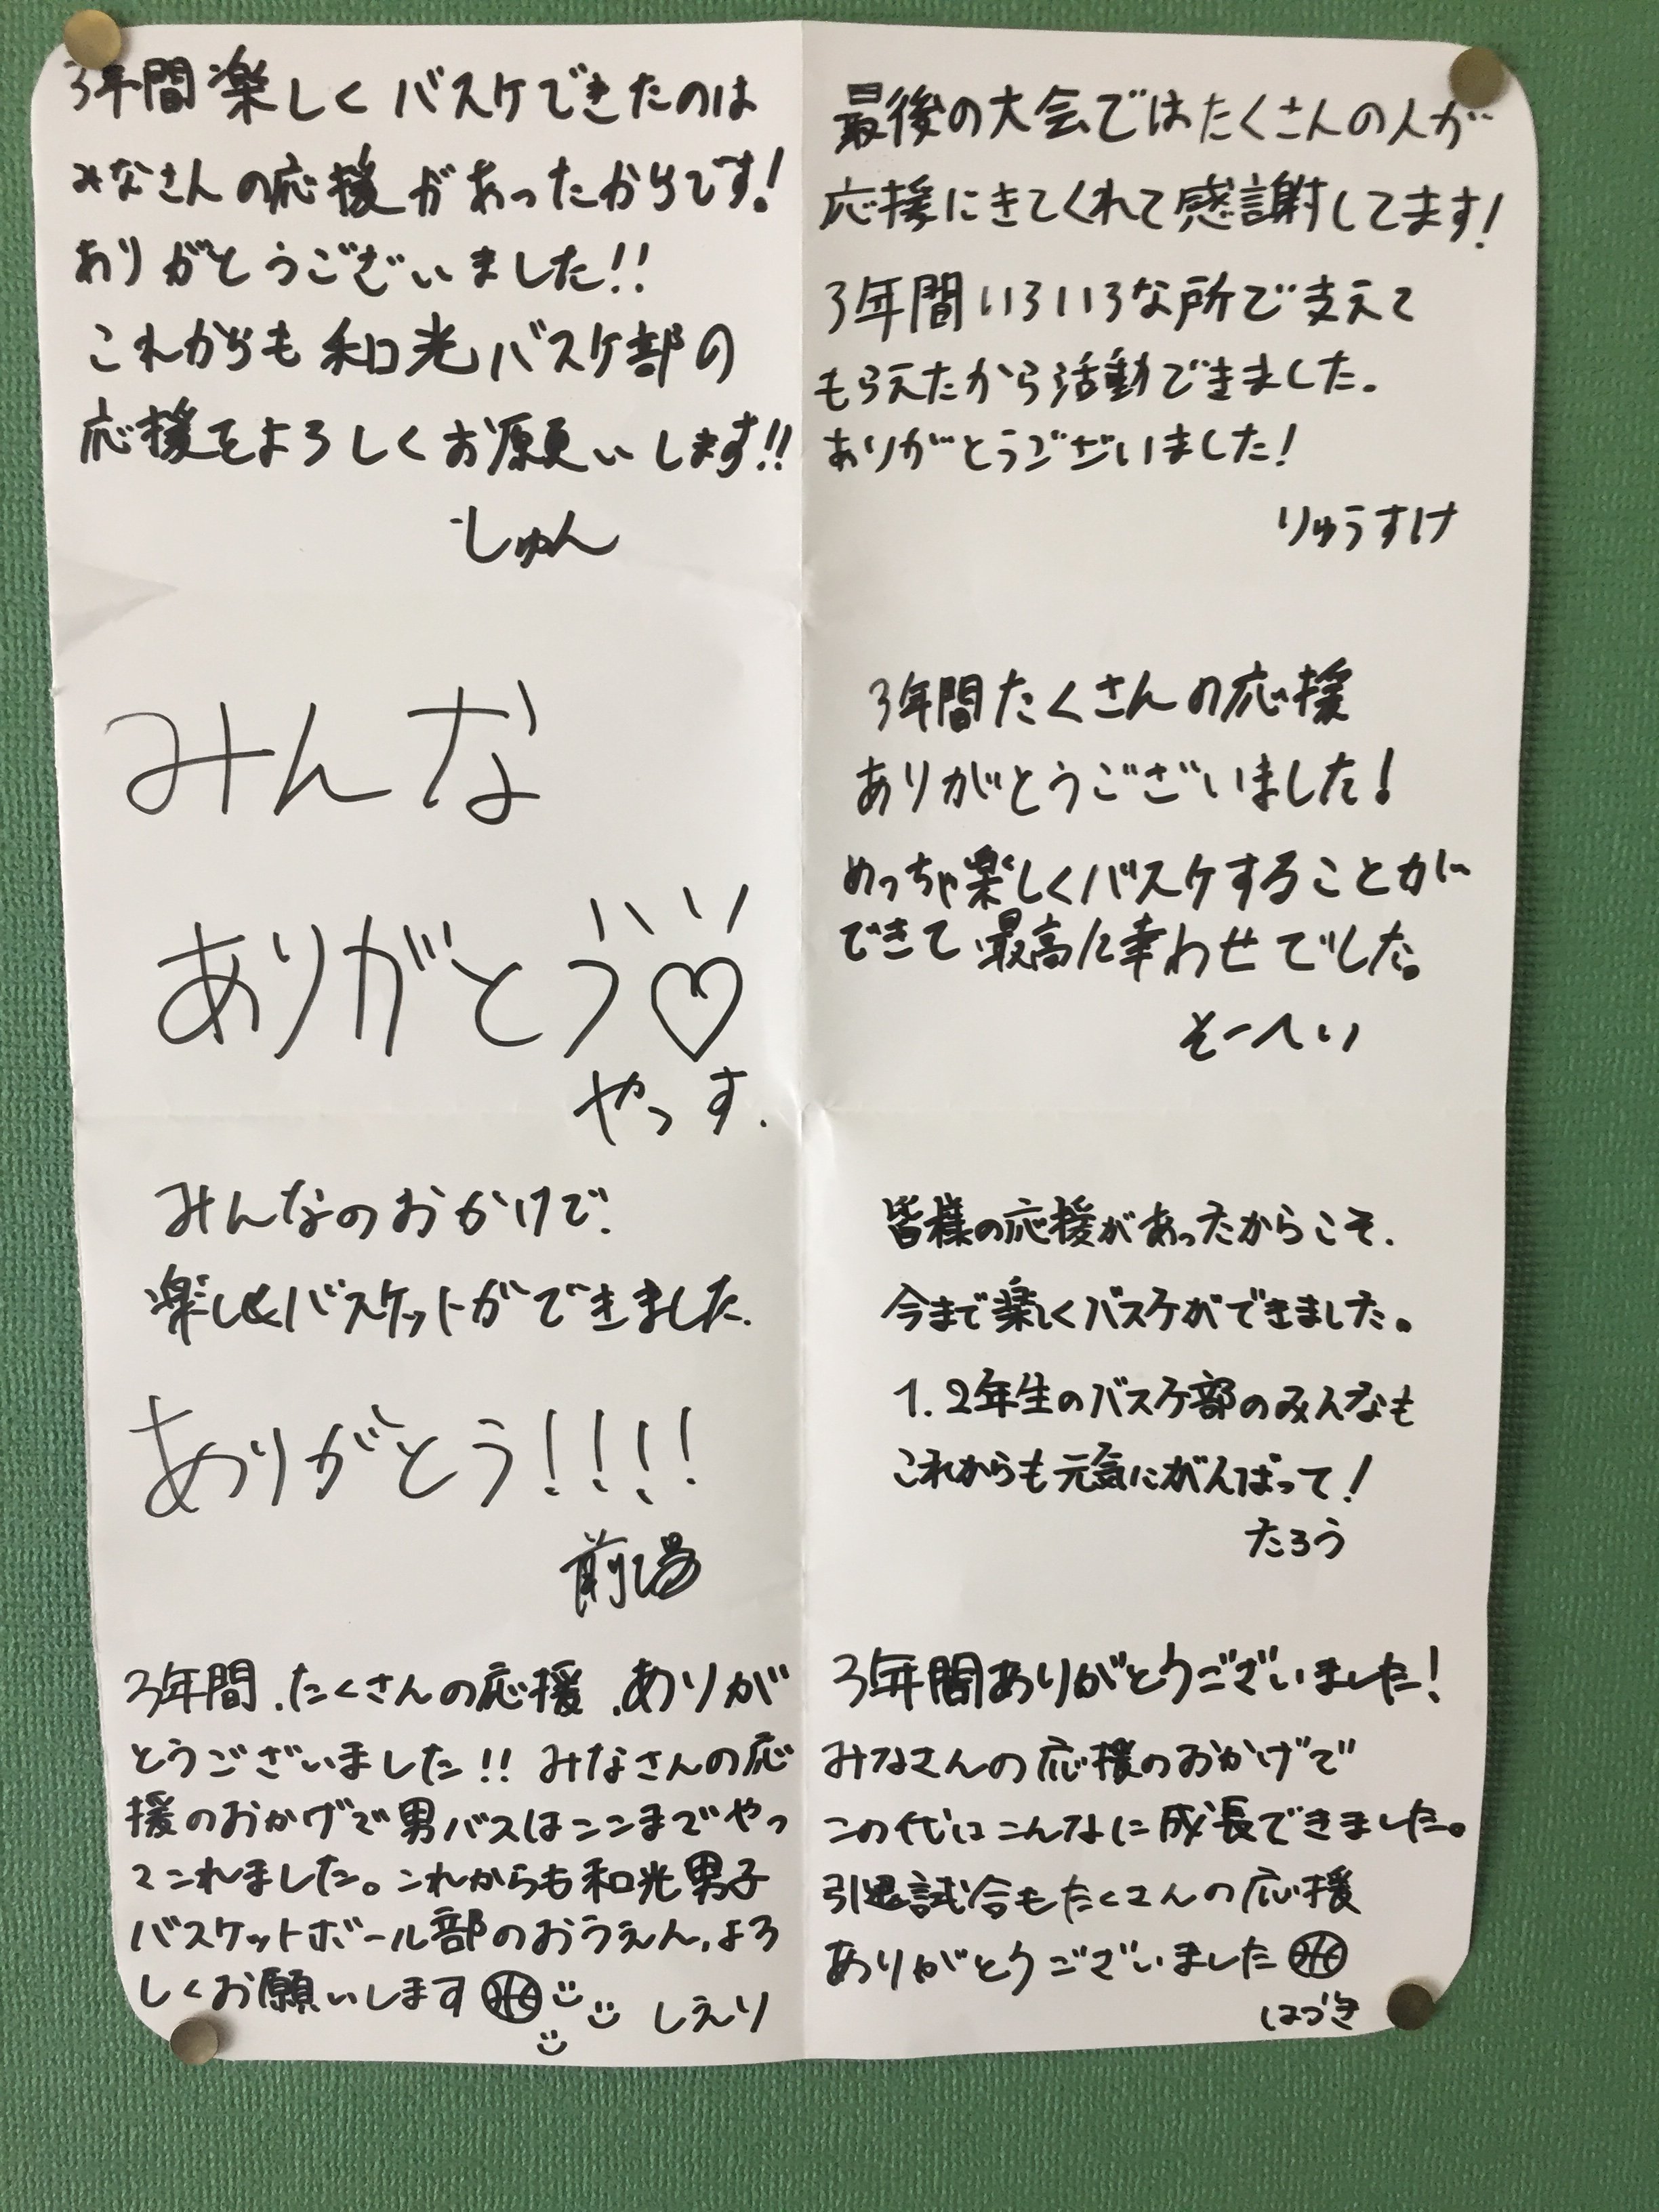 3年間楽しくバスケできたのは
みなさんの応援があったからです!
ありがとうございました!!
これからも和光バスケ部の
応援をよろしくお願いします!!
しゅん
最後の大会ではたくさんの人が
応援にきてくれて感謝してます!
3年間いろいろな所で支えて
もらえたから活動できました。
ありがとうございました!
りゅうすけ
みんな
ありがとう♡
やっす.
3年間たくさんの応援
ありがとうございました!
めっちゃ楽しくバスケすることが
できて最高に幸わせでした。
そーへい
みんなのおかげで
楽しくバスケットができました.
ありがとう!!!!
皆様の応援があったからこそ、
今まで楽しくバスケができました。
1.2年生のバスケ部のみんなも
これからも元気にがんばって!
たろう
3年間、たくさんの応援、ありが
とうございました!! みなさんの応
援のおかげで男バスはここまでやっ
てこれました。これからも和光男子
バスケットボール部のおうえん、よろ
しくお願いします しえり
3年間ありがとうございました!
みなさんの応援のおかげで
この代はこんなに成長できました。
引退試合もたくさんの応援
ありがとうございました
はづき